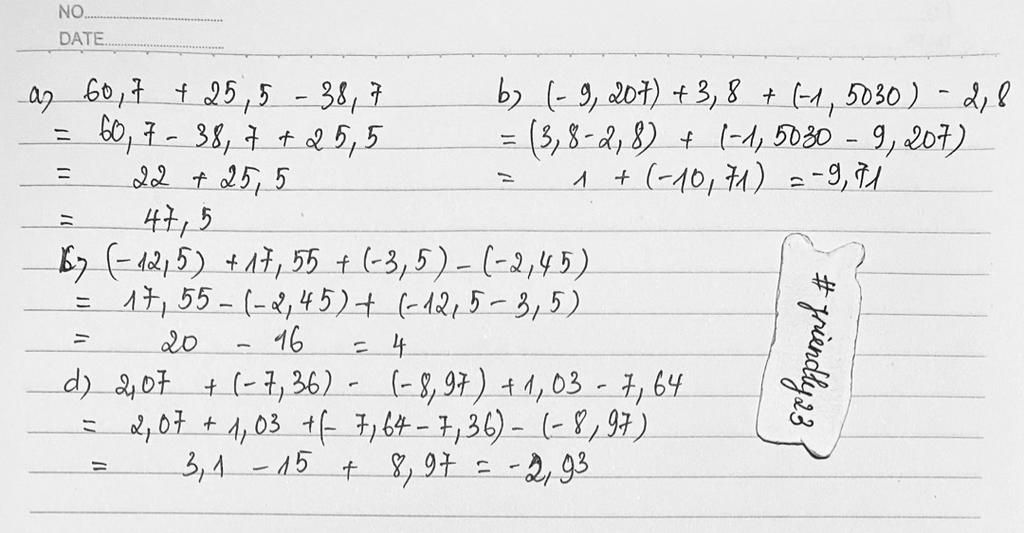 NO
DATE
a) 60,7 + 25,5 - 38,7
= 60,7 - 38,7 + 25,5
= 22 + 25,5
= 47,5
b) (-9,207) + 3,8 + (-1,5030) - 2,8
= (3,8-2,8) + (-1,5030 - 9,207)
= 1 + (-10,71) = -9,71
c) (-12,5) + 17,55 + (-3,5) - (-2,45)
= 17,55 - (-2,45) + (-12,5 - 3,5)
= 20 - 16 = 4
d) 2,07 + (-7,36) - (-8,97) + 1,03 - 7,64
= 2,07 + 1,03 + (- 7,64 - 7,36) - (-8,97)
= 3,1 - 15 + 8,97 = -2,93
#friendly23